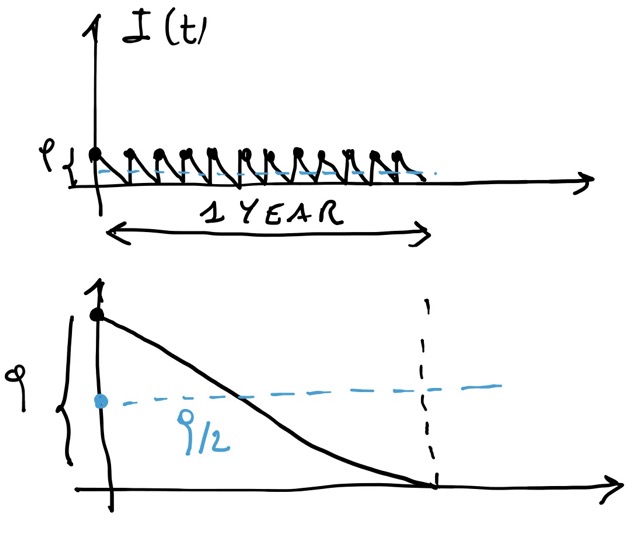 I(t)
Q
1 YEAR
Q
Q/2